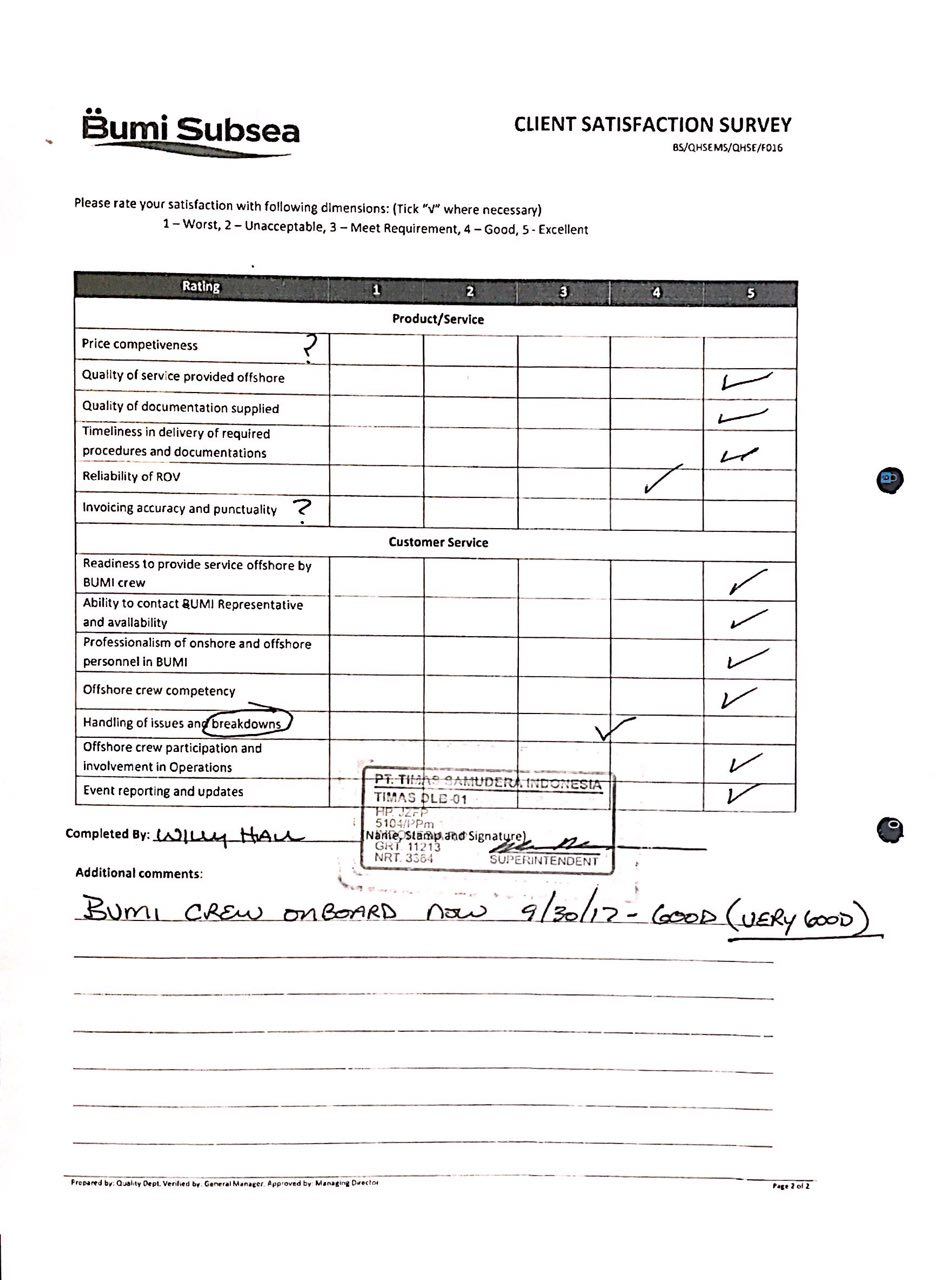 Bumi Subsea
CLIENT SATISFACTION SURVEY
BS/QHSEMS/QHSE/F016
Please rate your satisfaction with following dimensions: (Tick "√" where necessary)
1 – Worst, 2 – Unacceptable, 3 – Meet Requirement, 4 – Good, 5 - Excellent
Rating 1 2 3 4 5
Product/Service
Price competiveness ?
Quality of service provided offshore ✓
Quality of documentation supplied ✓
Timeliness in delivery of required
procedures and documentations ✓
Reliability of ROV ✓
Invoicing accuracy and punctuality ?
Customer Service
Readiness to provide service offshore by
BUMI crew ✓
Ability to contact BUMI Representative
and availability ✓
Professionalism of onshore and offshore
personnel in BUMI ✓
Offshore crew competency ✓
Handling of issues and breakdowns ✓
Offshore crew participation and
involvement in Operations ✓
Event reporting and updates ✓
PT. TIMAS SAMUDERA INDONESIA
TIMAS DLB-01
HP. JZFP
5104/PPm
Completed By: WILLY HALL
Name, Stamp and Signature)
GRT. 11213
NRT. 3364
SUPERINTENDENT
Additional comments:
BUMI CREW ONBOARD NOW 9/30/12 - GOOD (VERY GOOD)
Prepared by: Quality Dept. Verified by: General Manager. Approved by: Managing Director
Page 2 of 2